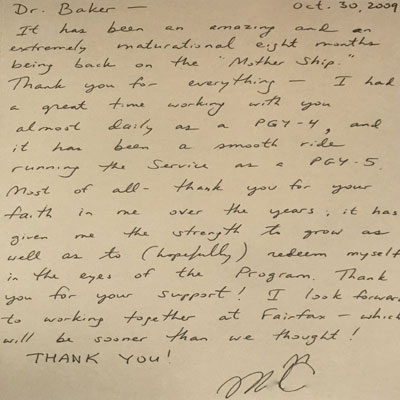 Dr. Baker — Oct. 30, 2009
It has been an amazing and an
extremely maturational eight months
being back on the "Mother Ship."
Thank you for everything — I had
a great time working with you
almost daily as a PGY-4, and
it has been a smooth ride
running the Service as a PGY-5.
Most of all - thank you for your
faith in me over the years; it has
given me the strength to grow as
well as to (hopefully) redeem myself
in the eyes of the Program. Thank
you for your support! I look forward
to working together at Fairfax - which
will be sooner than we thought!
THANK YOU!